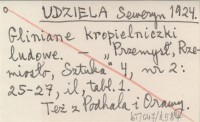 UDZIELA Seweryn 1924.
Gliniane kropielniczki
ludowe. — „Przemysł, Rze-
miosło, Sztuka" 4, nr 2:
25-27, il., tabl. 1.
Też z Podhala i Orawy.